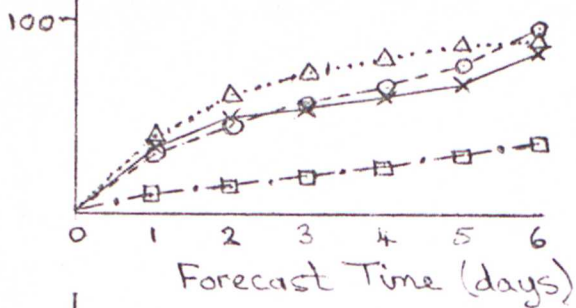 100
0 1 2 3 4 5 6
Forecast Time (days)